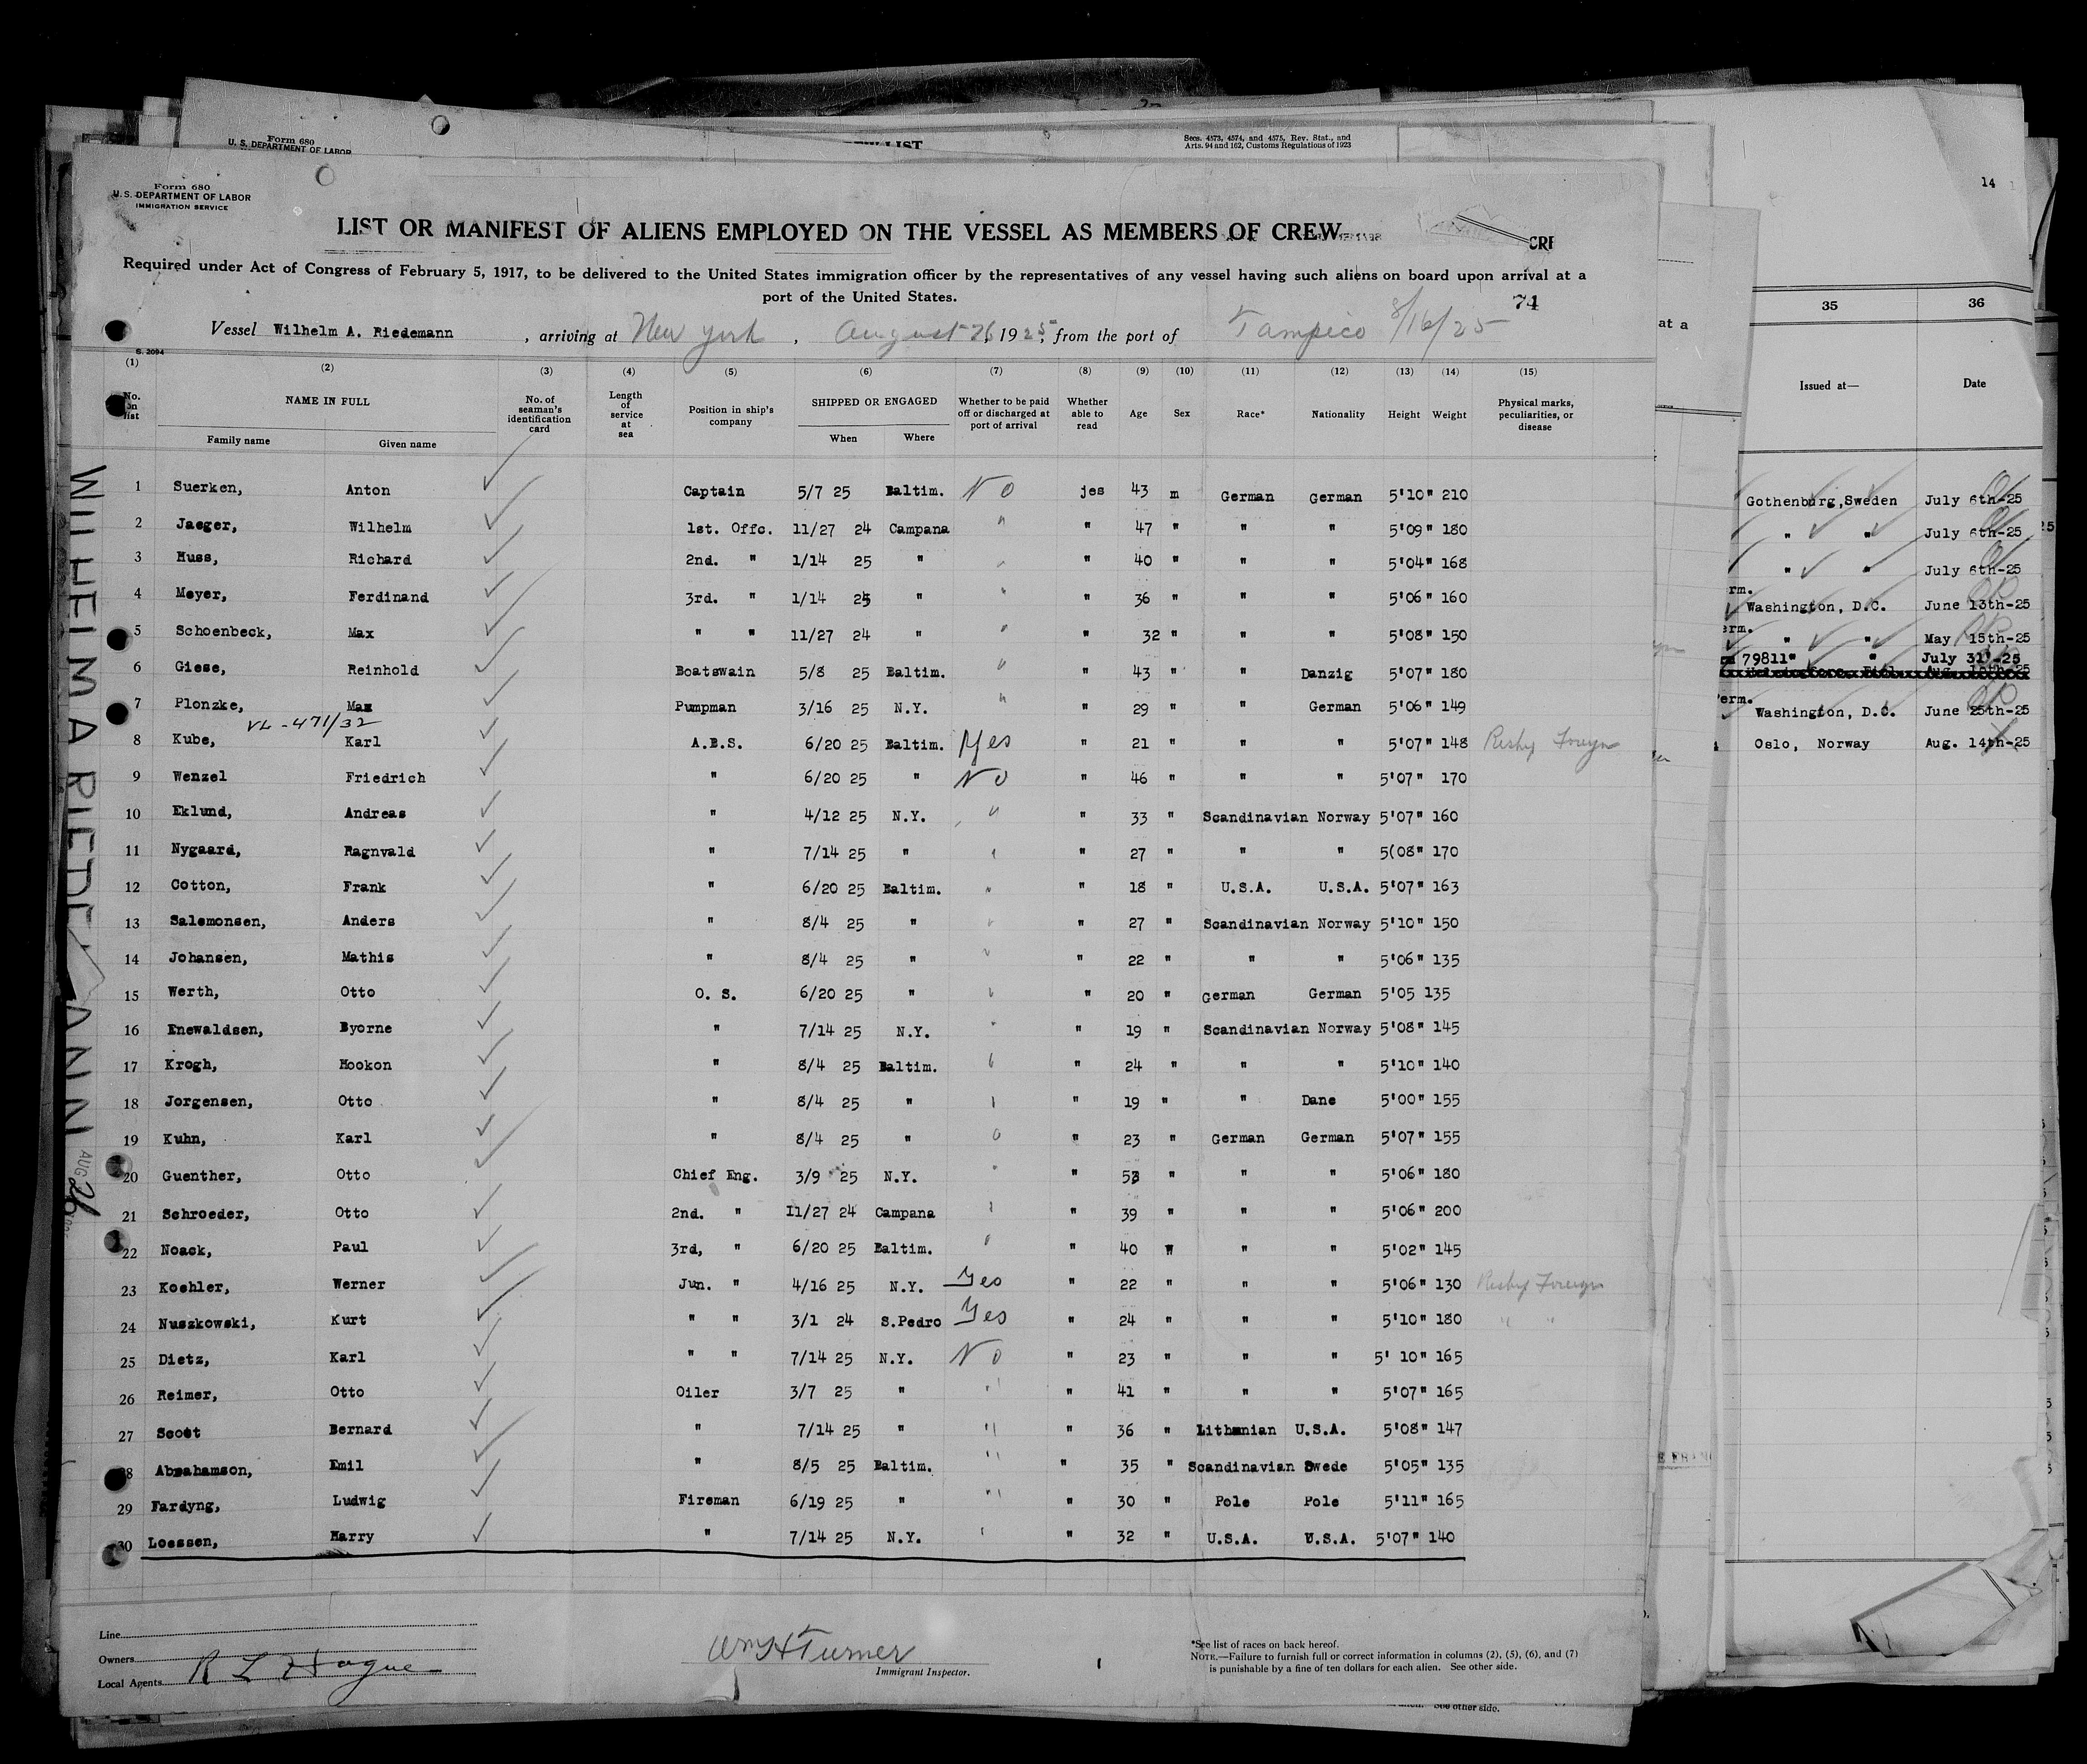 Form 680
U. S. DEPARTMENT OF LABOR
Secs. 4573, 4574, and 4575, Rev. Stat., and
Arts. 94 and 162, Customs Regulations of 1923
14
Form 680
U. S. DEPARTMENT OF LABOR
IMMIGRATION SERVICE
LIST OR MANIFEST OF ALIENS EMPLOYED ON THE VESSEL AS MEMBERS OF CREW
Required under Act of Congress of February 5, 1917, to be delivered to the United States immigration officer by the representatives of any vessel having such aliens on board upon arrival at a
port of the United States.
74
Vessel Wilhelm A. Riedemann , arriving at New York , August 26, 1925, from the port of Tampico 8/16/25
S. 2094
(1) (2) (3) (4) (5) (6) (7) (8) (9) (10) (11) (12) (13) (14) (15)
No. on list NAME IN FULL No. of seaman's identification card Length of service at sea Position in ship's company SHIPPED OR ENGAGED Whether to be paid off or discharged at port of arrival Whether able to read Age Sex Race* Nationality Height Weight Physical marks, peculiarities, or disease
Family name Given name When Where
1 Suerken, Anton Captain 5/7 25 Baltim. No jes 43 m German German 5'10" 210
2 Jaeger, Wilhelm 1st. Offc. 11/27 24 Campana " " 47 " " " 5'09" 180
3 Huss, Richard 2nd. " 1/14 25 " " " 40 " " " 5'04" 168
4 Meyer, Ferdinand 3rd. " 1/14 25 " " " 36 " " " 5'06" 160
5 Schoenbeck, Max " " 11/27 24 " " " 32 " " " 5'08" 150
6 Giese, Reinhold Boatswain 5/8 25 Baltim. " " 43 " " Danzig 5'07" 180
7 Plonzke, Max Pumpman 3/16 25 N.Y. " " 29 " " German 5'06" 149
VL-471/32
8 Kube, Karl A.B.S. 6/20 25 Baltim. Yes " 21 " " " 5'07" 148 Reshp Foreign
9 Wenzel Friedrich " 6/20 25 " No " 46 " " " 5'07" 170
10 Eklund, Andreas " 4/12 25 N.Y. " " 33 " Scandinavian Norway 5'07" 160
11 Nygaard, Ragnvald " 7/14 25 " " " 27 " " " 5(08" 170
12 Cotton, Frank " 6/20 25 Baltim. " " 18 " U.S.A. U.S.A. 5'07" 163
13 Salemonsen, Anders " 8/4 25 " " " 27 " Scandinavian Norway 5'10" 150
14 Johansen, Mathis " 8/4 25 " " " 22 " " " 5'06" 135
15 Werth, Otto O. S. 6/20 25 " " " 20 " German German 5'05 135
16 Enewaldsen, Byorne " 7/14 25 N.Y. " " 19 " Scandinavian Norway 5'08" 145
17 Krogh, Hookon " 8/4 25 Baltim. " " 24 " " " 5'10" 140
18 Jorgensen, Otto " 8/4 25 " " " 19 " " Dane 5'00" 155
19 Kuhn, Karl " 8/4 25 " " " 23 " German German 5'07" 155
20 Guenther, Otto Chief Eng. 3/9 25 N.Y. " " 53 " " " 5'06" 180
21 Schroeder, Otto 2nd. " 11/27 24 Campana " " 39 " " " 5'06" 200
22 Noack, Paul 3rd, " 6/20 25 Baltim. " " 40 " " " 5'02" 145
23 Koehler, Werner Jun. " 4/16 25 N.Y. Yes " 22 " " " 5'06" 130 Reshp Foreign
24 Nuszkowski, Kurt " " 3/1 24 S.Pedro Yes " 24 " " " 5'10" 180 " "
25 Dietz, Karl " " 7/14 25 N.Y. No " 23 " " " 5' 10" 165
26 Reimer, Otto Oiler 3/7 25 " " " 41 " " " 5'07" 165
27 Scott Bernard " 7/14 25 " " " 36 " Lithanian U.S.A. 5'08" 147
28 Abrahamson, Emil " 8/5 25 Baltim. " " 35 " Scandinavian Swede 5'05" 135
29 Fardyng, Ludwig Fireman 6/19 25 " " " 30 " Pole Pole 5'11" 165
30 Loessen, Harry " 7/14 25 N.Y. " " 32 " U.S.A. U.S.A. 5'07" 140
WILHELM A RIEDEMANN AUG 26
Line
Owners
Local Agents R L Hague
Wm H Turner
Immigrant Inspector.
*See list of races on back hereof.
NOTE.—Failure to furnish full or correct information in columns (2), (5), (6), and (7)
is punishable by a fine of ten dollars for each alien. See other side.
See other side.
at a
35 36
Issued at— Date
Gothenburg,Sweden July 6th-25
" " July 6th-25
" " July 6th-25
erm. Washington, D.C. June 13th-25
erm. " " May 15th-25
79811" " July 31'-25
erm. Washington, D.C. June 25th-25
Oslo, Norway Aug. 14th-25